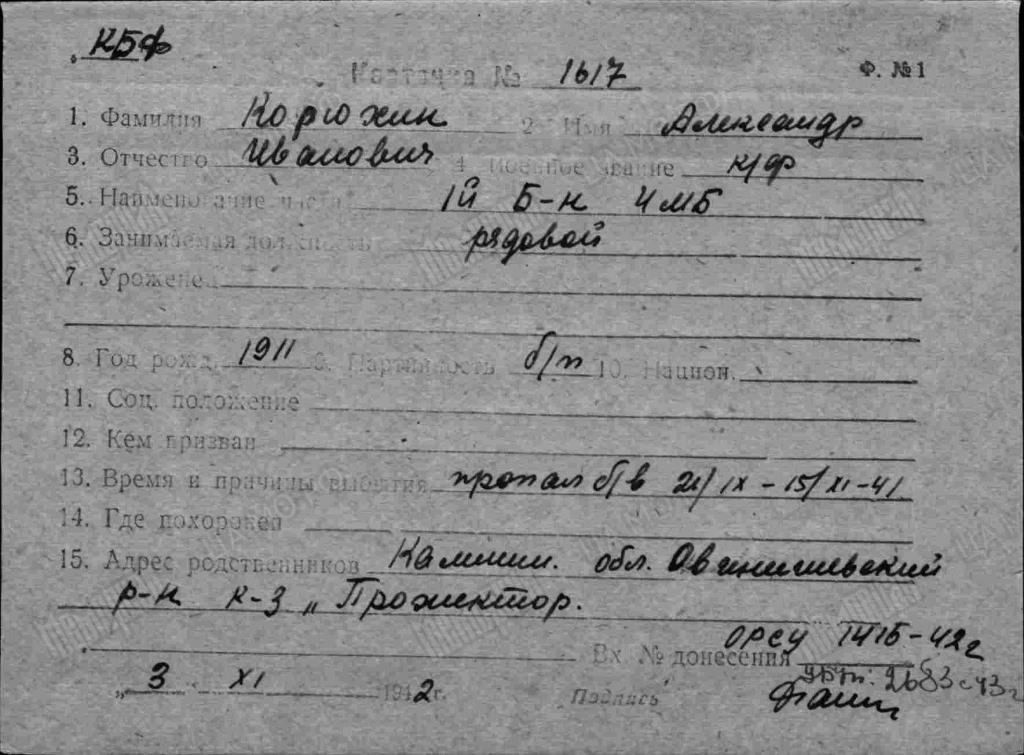 КБФ
Карточка № 1617 Ф. №1
1. Фамилия Корюхин 2. Имя Александр
3. Отчество Иванович 4. Военное звание к/ф
5. Наименование части 1й Б-н 4 МБ
6. Занимаемая должность рядовой
7. Уроженец
8. Год рожд. 1911 9. Партийность б/п 10. Национ.
11. Соц. положение
12. Кем призван
13. Время и причины выбытия пропал б/в 21/IX - 15/XI-41
14. Где похоронен
15. Адрес родственников Калинин. обл. Овинищевский
р-н к-з „Прожектор.
Вх. № донесения ОРСУ 1415-42г
2683с-43г
„ 3 XI 1942г. Подпись